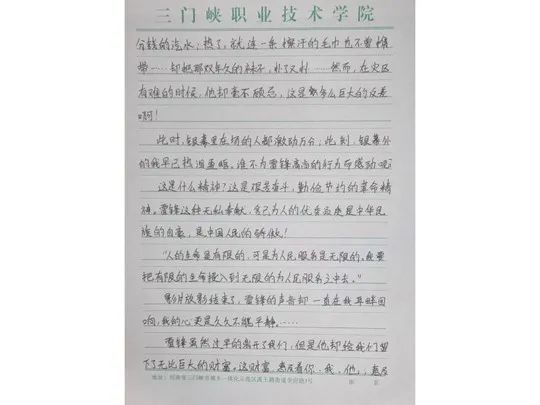 三门峡职业技术学院
分钱的汽水；热了，就连一条擦汗的毛巾也不曾携
带……却把那双年久的袜子，补了又衬……然而，在灾区
有难的时候，他却毫不顾忌，这是多么巨大的反差
啊！
此时，银幕里在场的人都激动万分；此刻，银幕外
的我早已热泪盈眶。谁不为雷锋高尚的行为所感动呢
这是什么精神？这是艰苦奋斗，勤俭节约的革命精
神。雷锋这种无私奉献，舍己为人的优秀品质是中华民
族的自豪，是中国人民的骄傲！
"人的生命是有限的，可是为人民服务是无限的，我要
把有限的生命投入到无限的为人民服务之中去。"
影片放影结束了，雷锋的声音却一直在我耳畔回
响，我的心更是久久不能平静……
雷锋虽然过早的离开了我们，但是他却给我们留
下了无比巨大的财富。这财富，惠及着你、我、他，惠及
地址：河南省三门峡市城乡一体化示范区